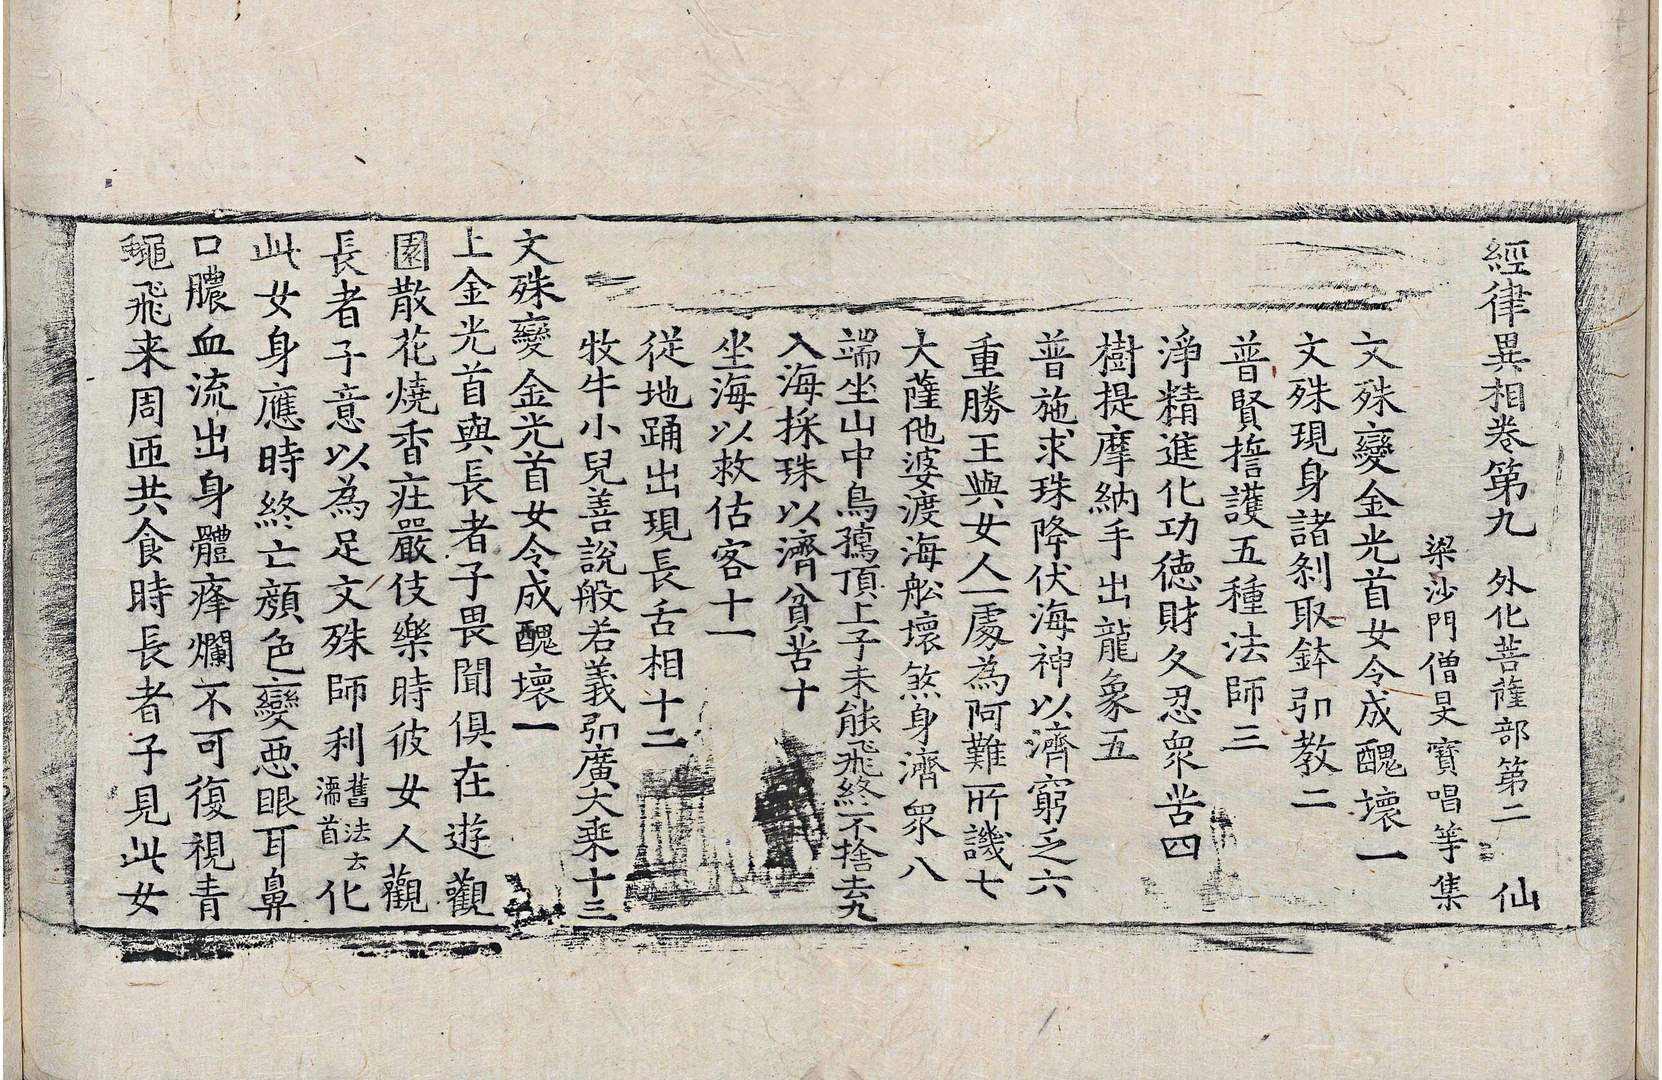 經律異相卷第九 外化菩薩部第二 仙
梁沙門僧旻寶唱等集
文殊變金光首女令成醜壞一
文殊現身諸剎取鉢引教二
普賢誓護五種法師三
淨精進化功德財久忍衆苦四
樹提摩納手出龍象五
普施求珠降伏海神以濟窮乏六
重勝王與女人一處為阿難所譏七
大薩他婆渡海舩壞煞身濟衆八
端坐山中鳥孺頂上子未能飛終不捨去九
入海採珠以濟貧苦十
坐海以救估客十一
従地踊出現長舌相十二
牧牛小兒善說般若義引廣大乗十三
文殊變金光首女令成醜壞一
上金光首與長者子畏聞俱在遊觀
園散花燒香庄嚴伎樂時彼女人觀
長者子意以為足文殊師利舊法云濡首化
此女身應時終亡顏色變惡眼耳鼻
口膿血流出身體瘇爛不可復視青
蠅飛来周匝共食時長者子見此女